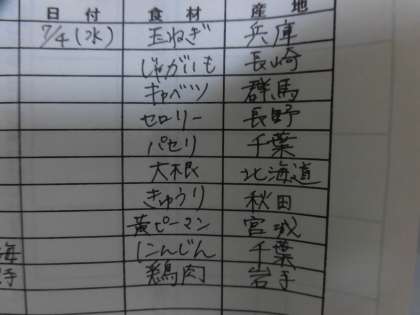 日付 食材 産地
7/4(水) 玉ねぎ 兵庫
じゃがいも 長崎
キャベツ 群馬
セロリー 長野
パセリ 千葉
大根 北海道
きゅうり 秋田
黄ピーマン 宮城
海 にんじん 千葉
手 鶏肉 岩手